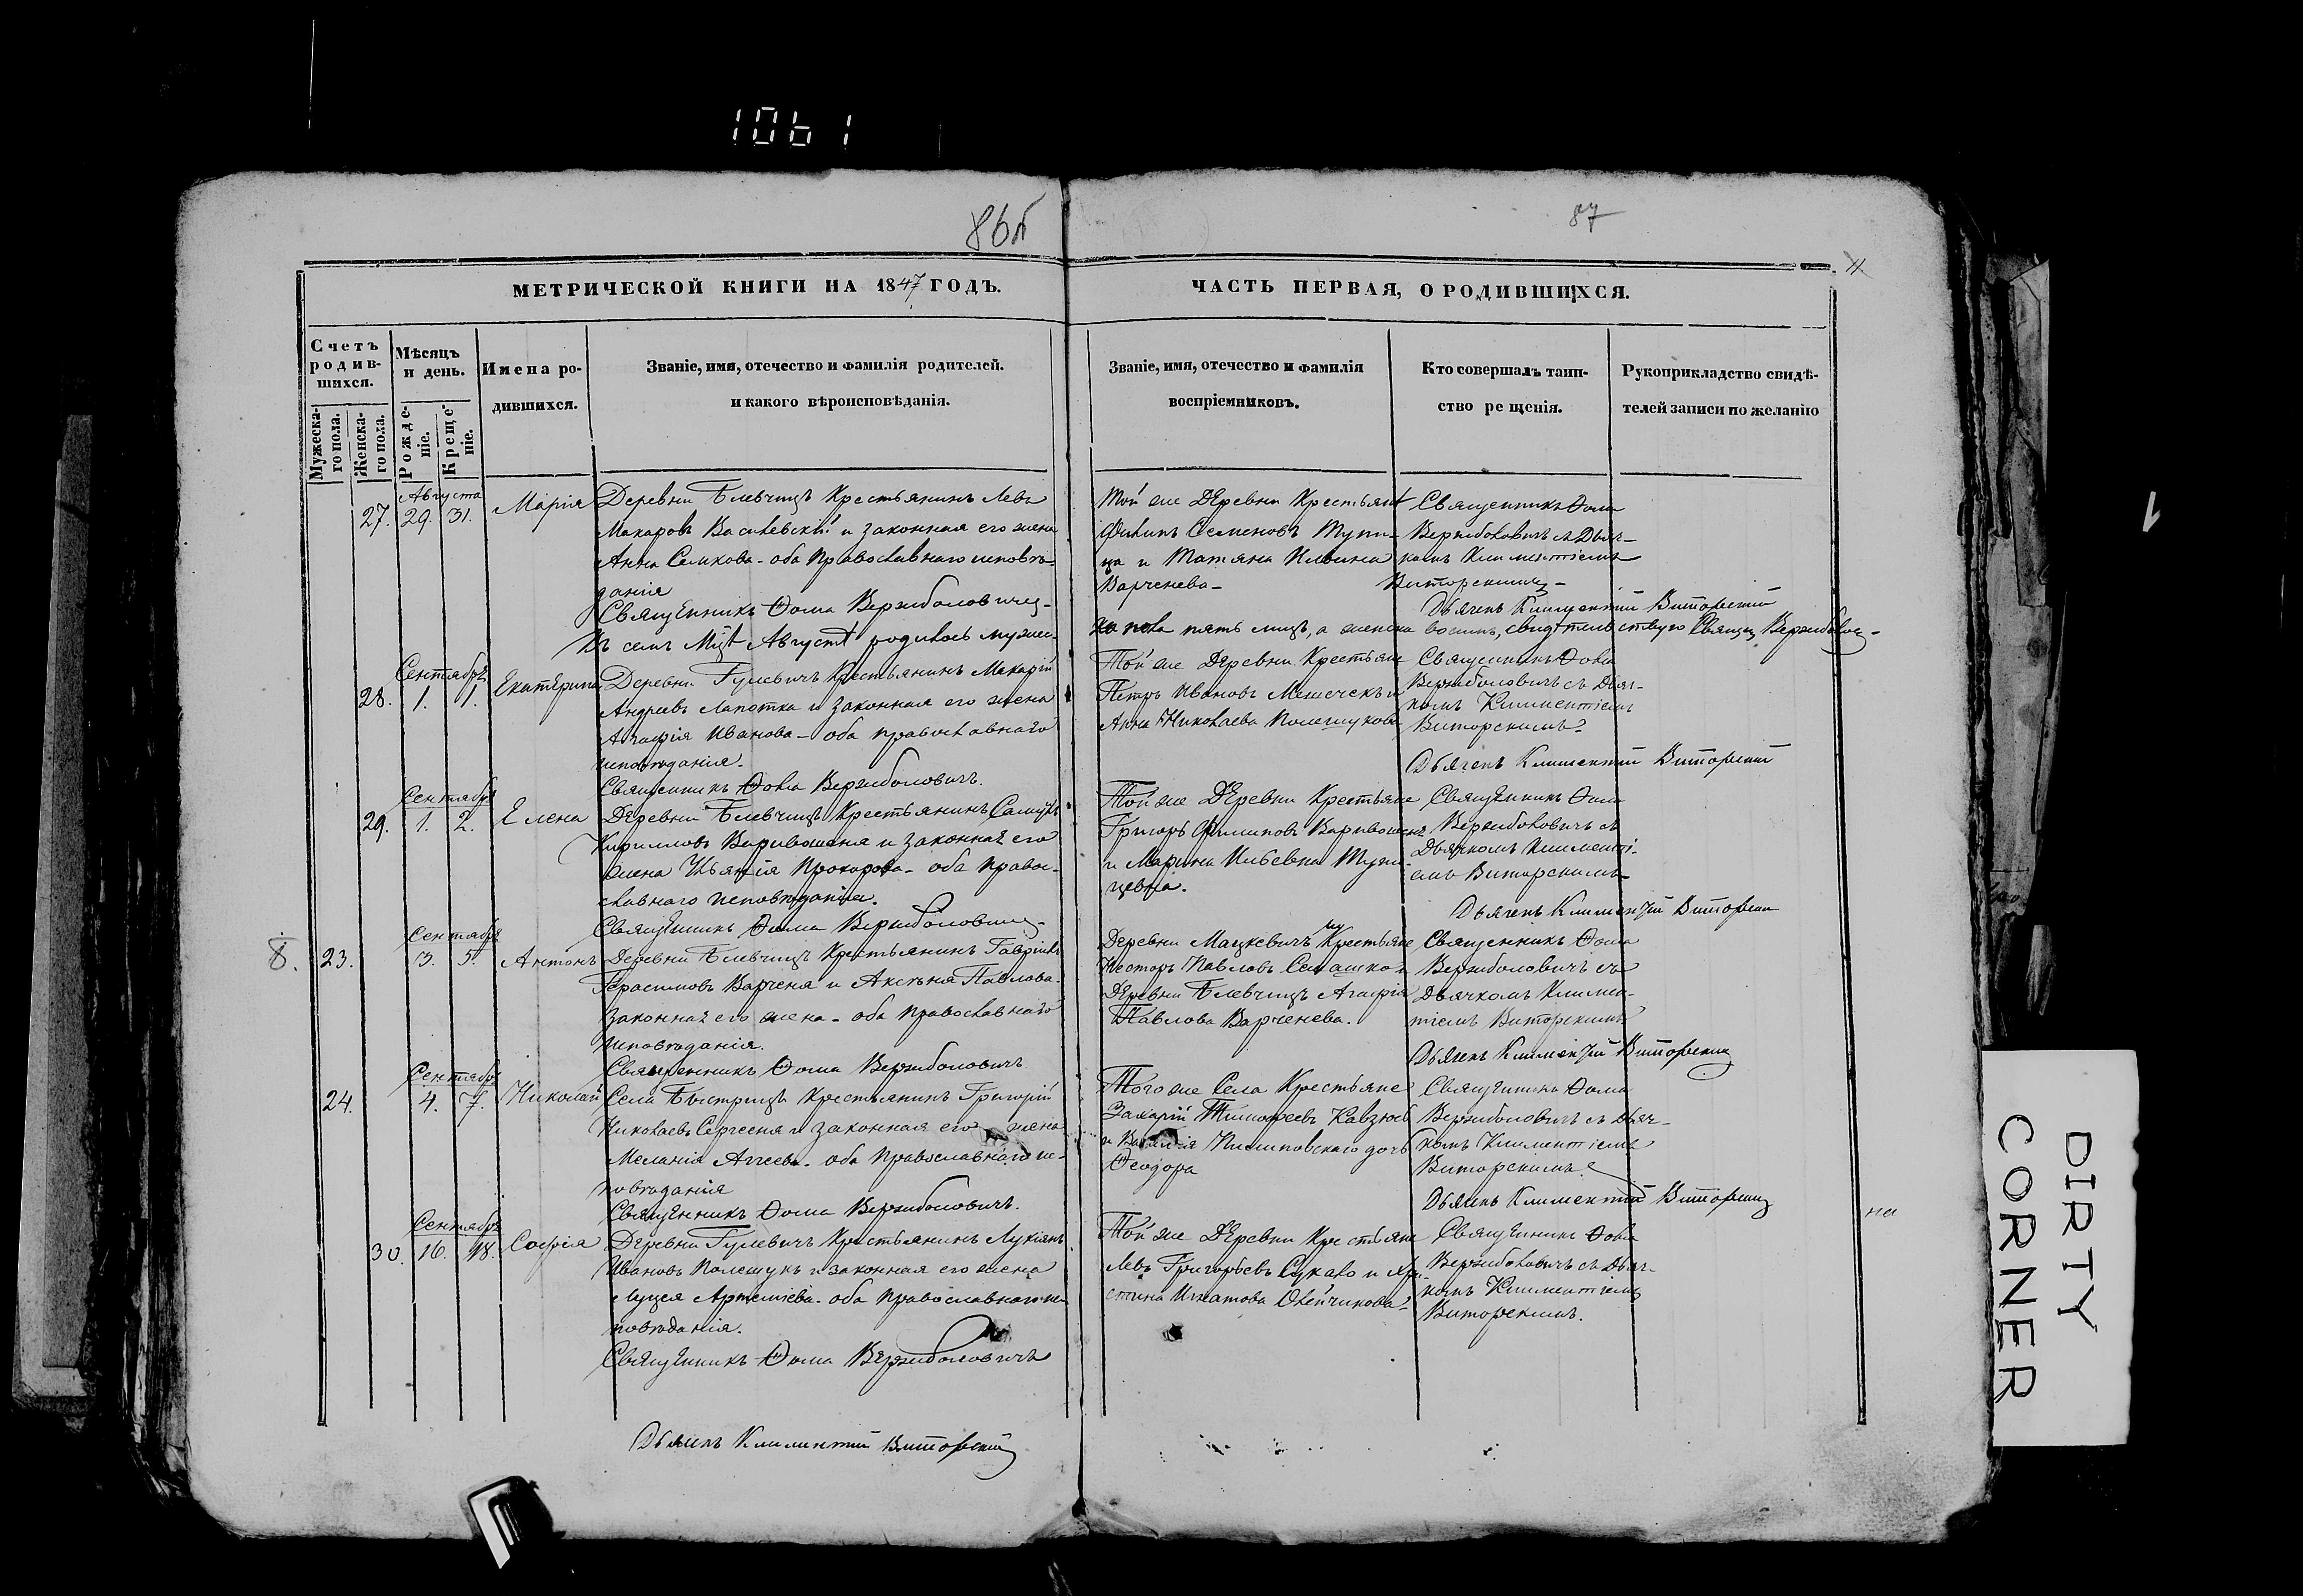 1061
86б
87
МЕТРИЧЕСКОЙ КНИГИ НА 1847 ГОДЪ.
ЧАСТЬ ПЕРВАЯ, О РОДИВШИХСЯ.
Счетъ родив-шихся.
Мужеска-го пола.
Женска-го пола.
Мѣсяцъ и день.
Рожде-ніе.
Креще-ніе.
Имена ро-дившихся.
Званіе, имя, отечество и фамилія родителей.
и какого вѣроисповѣданія.
Званіе, имя, отечество и фамилія
воспріемниковъ.
Кто совершалъ таин-
ство ре щенія.
Рукоприкладство свидѣ-
телей записи по желанію
Августа
27. 29. 31. Марія
Деревни Блевчицъ Крестьянинъ Левъ
Макаровъ Василевскій и законная его жена
Анна Семкова - оба Православнаго исповѣ-
данія
Священникъ Фома Вержболовичъ
Той же Деревни Крестьяне
Филипъ Семеновъ Тупи-
ца и Татяна Ильина
Варченева -
Священникъ Фома
Вержболовичъ съ Дьяч-
комъ Климентіемъ
Виторскимъ -
Дьячекъ Климентій Виторскій
Въ семъ Мцѣ Августѣ родилось мужес-
ка пола пять лицъ, а женска восимь, свидѣтельствую Священ. Вержболович-
Сентября
28. 1. 1. Екатерина
Деревни Гулевичъ Крестьянинъ Макарій
Андреевъ Лапотка и законная его жена
Агафія Иванова - оба православнаго
исповѣданія.
Священникъ Фома Вержболовичъ.
Той же Деревни Крестьяне
Петръ Ивановъ Мешечекъ и
Анна Николаева Полешукова
Священникъ Фома
Вержболовичъ съ Дьяч-
комъ Климентіемъ
Виторскимъ
Дьячекъ Климентій Виторскій
Сентября
29. 1. 2. Елена
Деревни Блевчицъ Крестьянинъ Самуилъ
Кирилловъ Варивошеня и законная его
жена Ульянія Прохорова - оба право-
славнаго исповѣданія.
Священникъ Фома Вержболовичъ
Той же Деревни Крестьяне
Григорь Филиповъ Варивошеня
и Марина Ильевна Тупи-
цевна.
Священникъ Фома
Вержболовичъ съ
Дьячкомъ Климентi-
емъ Виторскимъ
Дьячекъ Климентій Виторскій
Сентября
8. 23. 3. 5. Антонъ
Деревни Блевчицъ Крестьянинъ Гавріилъ
Герасимовъ Варченя и Аксенія Павлова
законная его жена - оба православнаго
исповѣданія.
Священникъ Фома Вержболовичъ
Деревни Мацкевичъ Крестьяне
Несторъ Павловъ Семашко и
Деревни Блевчицъ Агафія
Павлова Варченева.
Священникъ Фома
Вержболовичъ съ
Дьячкомъ Климен-
тіемъ Виторскимъ
Дьячекъ Климентій Виторскій
Сентября
24. 4. 7. Николай
Села Быстрицъ Крестьянинъ Григорій
Николаевъ Сергееня и законная его жена
Меланія Аггеева - оба Православнаго ис-
повѣданія
Священникъ Фома Вержболовичъ.
Того же Села Крестьяне
Захарій Тимофеевъ Кавзюсъ
и дочь
Феодора
Священникъ Фома
Вержболовичъ съ Дьяч-
комъ Климентіемъ
Виторскимъ
Дьячекъ Климентій Виторскій
Сентября
30. 16. 18. Софія
Деревни Гулевичъ Крестьянинъ Лукіянъ
Ивановъ Полешукъ и законная его жена
Луцея Артеміева - оба православнаго ис-
повѣданія.
Священникъ Фома Вержболовичъ
Той же Деревни Крестьяне
Левъ Григорьевъ Сукало и Хри-
стина Игнатова Овейчикова
Священникъ Фома
Вержболовичъ съ Дьяч-
комъ Климентіемъ
Виторскимъ.
на
Дьячекъ Климентій Виторскій
DIRTY
CORNER
1